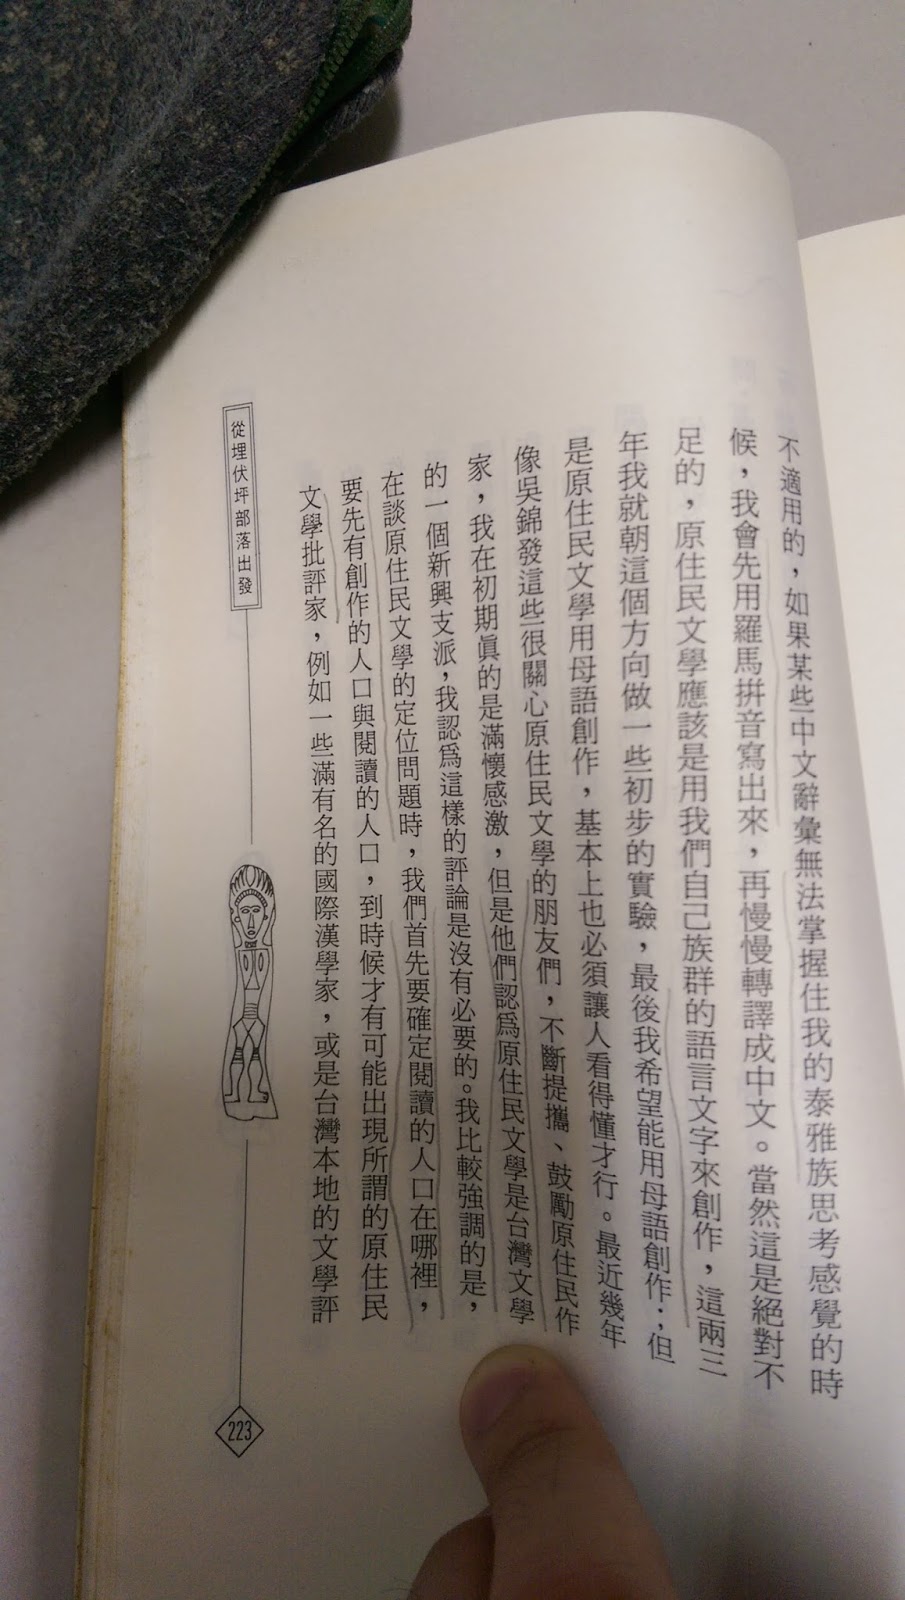 不適用的，如果某些中文辭彙無法掌握住我的泰雅族思考感覺的時
候，我會先用羅馬拼音寫出來，再慢慢轉譯成中文。當然這是絕對不
足的，原住民文學應該是用我們自己族群的語言文字來創作，這兩三
年我就朝這個方向做一些初步的實驗，最後我希望能用母語創作；但
是原住民文學用母語創作，基本上也必須讓人看得懂才行。最近幾年
像吳錦發這些很關心原住民文學的朋友們，不斷提攜、鼓勵原住民作
家，我在初期眞的是滿懷感激，但是他們認爲原住民文學是台灣文學
的一個新興支派，我認爲這樣的評論是沒有必要的。我比較強調的是，
在談原住民文學的定位問題時，我們首先要確定閱讀的人口在哪裡，
要先有創作的人口與閱讀的人口，到時候才有可能出現所謂的原住民
文學批評家，例如一些滿有名的國際漢學家，或是台灣本地的文學評
從埋伏坪部落出發
223